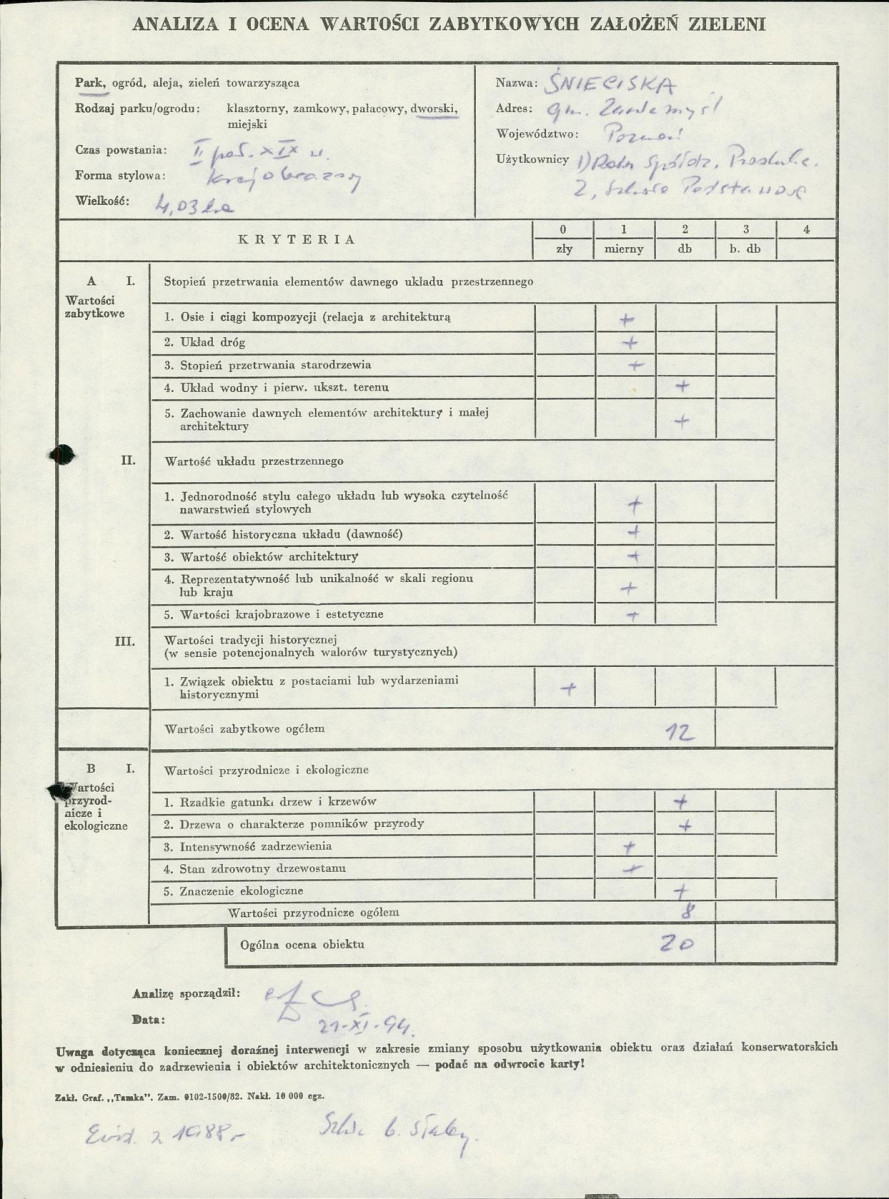 ANALIZA I OCENA WARTOŚCI ZABYTKOWYCH ZAŁOŻEŃ ZIELENI
Park, ogród, aleja, zieleń towarzysząca
Rodzaj parku/ogrodu: klasztorny, zamkowy, pałacowy, dworski,
miejski
Czas powstania: II poł. XIX w.
Forma stylowa: krajobrazowy
Wielkość: 4,03 ha
Nazwa: ŚNIECISKA
Adres: gm. Zaniemyśl
Województwo: Poznań
Użytkownicy 1) Roln. Spółdz. Produkc.
2, Szkoła Podstawowa
KRYTERIA
0 1 2 3 4
zły mierny db b. db
A I. Stopień przetrwania elementów dawnego układu przestrzennego
Wartości
zabytkowe
1. Osie i ciągi kompozycji (relacja z architekturą +
2. Układ dróg +
3. Stopień przetrwania starodrzewia +
4. Układ wodny i pierw. ukszt. terenu +
5. Zachowanie dawnych elementów architektury i małej
architektury +
II. Wartość układu przestrzennego
1. Jednorodność stylu całego układu lub wysoka czytelność
nawarstwień stylowych +
2. Wartość historyczna układu (dawność) +
3. Wartość obiektów architektury +
4. Reprezentatywność lub unikalność w skali regionu
lub kraju +
5. Wartości krajobrazowe i estetyczne +
III. Wartości tradycji historycznej
(w sensie potencjonalnych walorów turystycznych)
1. Związek obiektu z postaciami lub wydarzeniami
historycznymi +
Wartości zabytkowe ogółem 12
B I. Wartości przyrodnicze i ekologiczne
Wartości
przyrod-
nicze i
ekologiczne
1. Rzadkie gatunki drzew i krzewów +
2. Drzewa o charakterze pomników przyrody +
3. Intensywność zadrzewienia +
4. Stan zdrowotny drzewostanu +
5. Znaczenie ekologiczne +
Wartości przyrodnicze ogółem 8
Ogólna ocena obiektu 20
Analizę sporządził:
Data: 21-XI-94.
Uwaga dotycząca koniecznej doraźnej interwencji w zakresie zmiany sposobu użytkowania obiektu oraz działań konserwatorskich
w odniesieniu do zadrzewienia i obiektów architektonicznych — podać na odwrocie karty!
Zakł. Graf. „Tamka". Zam. 0102-1500/82. Nakł. 10 000 egz.
Ewid. z 1988 r b. słaby.